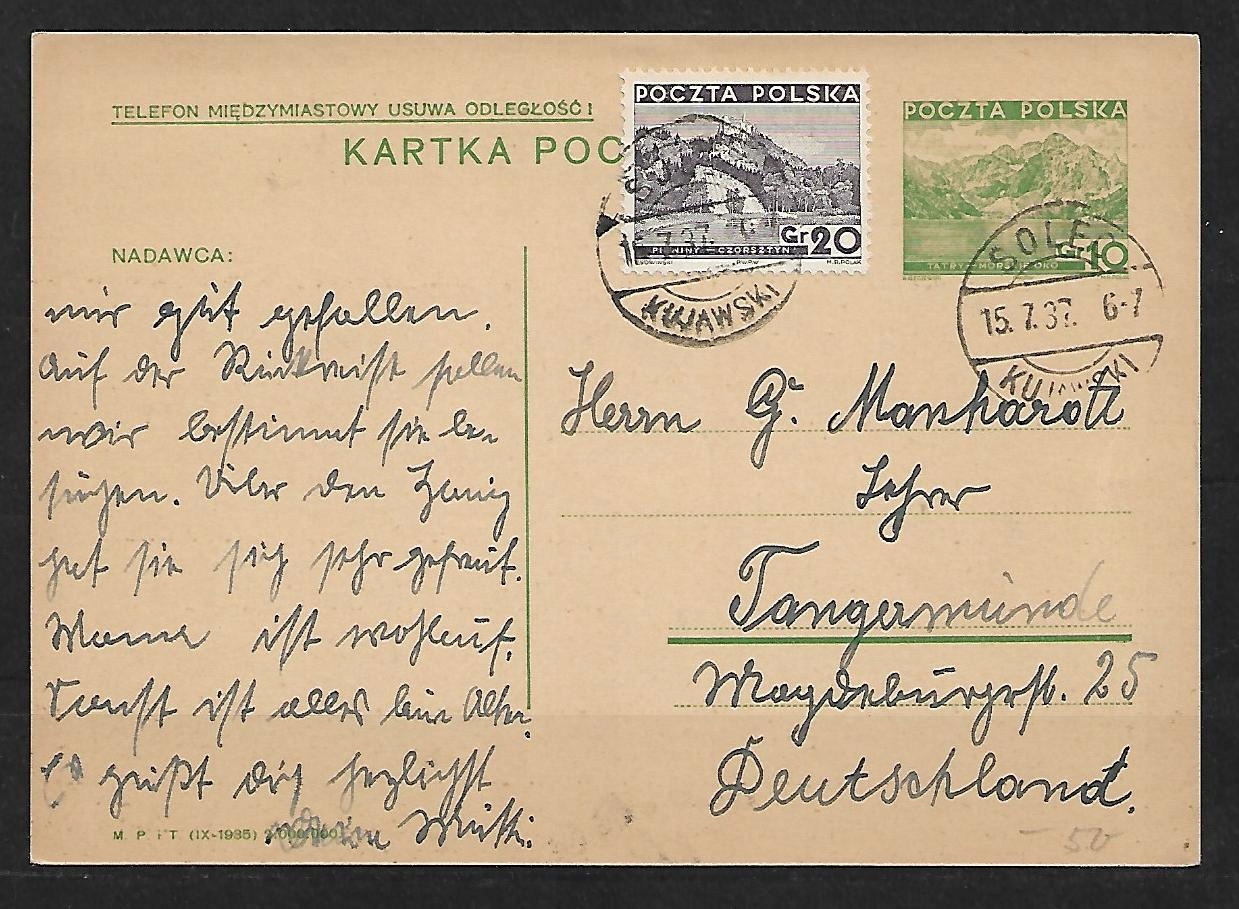 TELEFON MIĘDZYMIASTOWY USUWA ODLEGŁOŚĆ!
KARTKA POC
POCZTA POLSKA
Gr 20
PIENINY — CZORSZTYN
P.W.P.W.
M.R.POLAK
POCZTA POLSKA
Gr 10
TATRY — MORSKIE OKO
15.7.37.
KUJAWSKI
SOLEC
15.7.37. 6-7
KUJAWSKI
NADAWCA:
mir gut gefallen.
Auf der Rückreise sollen
wir bestimmt sie be-
suchen. Über den Honig
hat sie sich sehr gefreut.
Mama ist wohlauf.
Sonst ist alles beim Alten.
Es grüßt dich herzlichst
Mutti.
Herrn G. Manhardt
Lehrer
Tangermünde
Magdeburgerst. 25
Deutschland.
M. P. i T. (IX-1935) 2.000.000
- 50